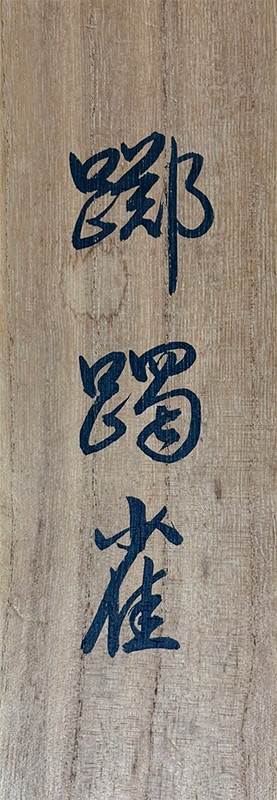 躑躅雀